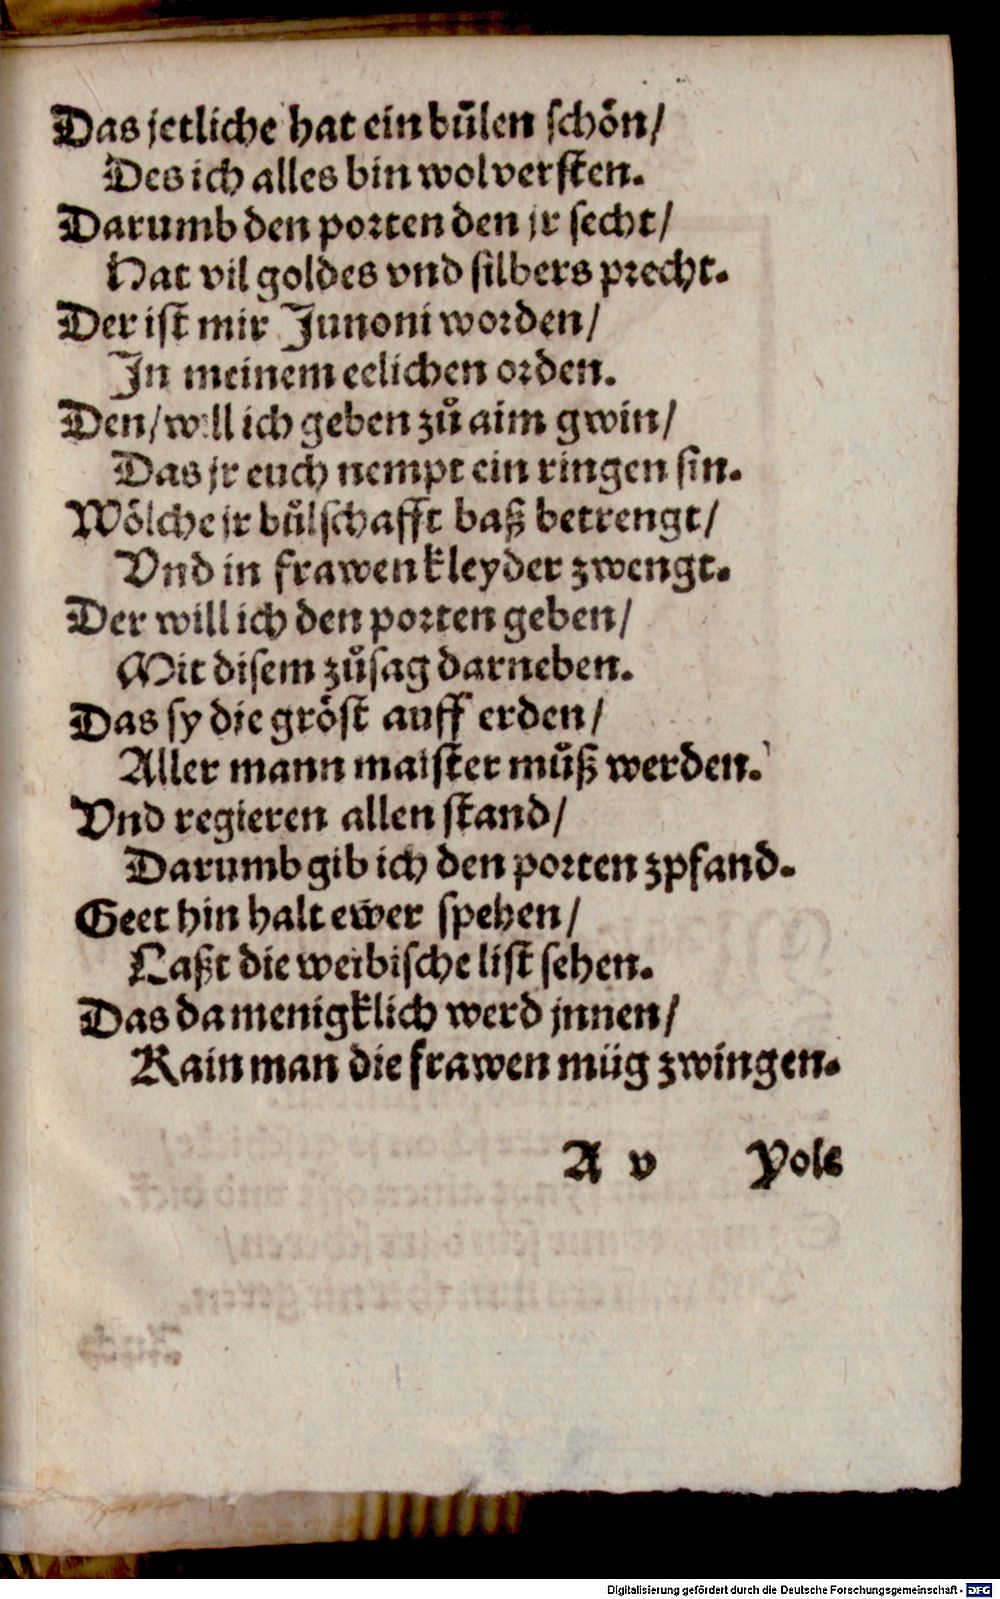 Das jetliche hat ein bůlen schoͤn/
Des ich alles bin wol versten.
Darumb den porten den jr secht/
Hat vil goldes vnd silbers precht.
Der ist mir Junoni worden/
In meinem eelichen orden.
Den/will ich geben zů aim gwin/
Das jr euch nempt ein ringen sin.
Woͤlche jr bůlschafft baß betrengt/
Vnd in frawen kleyder zwengt.
Der will ich den porten geben/
Mit disem zůsag darneben.
Das sy die groͤst auff erden/
Aller mann maister můß werden.
Vnd regieren allen stand/
Darumb gib ich den porten zpfand.
Geet hin halt ewer spehen/
Laßt die weibische list sehen.
Das da menigklich werd jnnen/
Kain man die frawen müg zwingen.
A v Pole
Digitalisierung gefördert durch die Deutsche Forschungsgemeinschaft - DFG